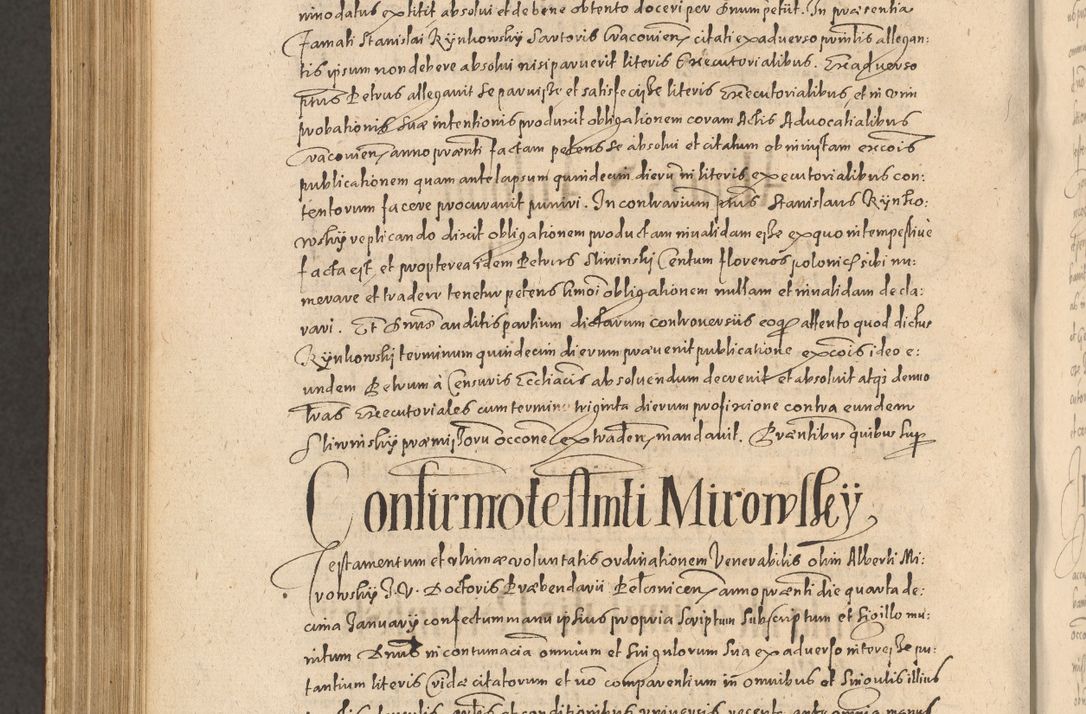 minodatus extitit absolui et de bene obtento doceri per Dnum petiit. In præsentia
famati Stanislai Rynkowsky Sartoris Cracovien citati ex adverso prmlis allegan:
tis ipsum non debere absolui nisi paruerit literis Executorialibus. Ex adverso
ptus Petrus allegauit se paruisse et satisfecisse literis Executorialibus, et in vim
probationis suæ intentionis produxit obligationem coram Actis Advocatialibus
Cracovien anno prænti factam petens se absolui et citatum ob iniustam excois
publicationem quam ante lapsum quindecim dierum in literis executorialibus con:
tentorum facere procurauit puniri. In contrarium ptus Stanislaus Rynko:
wsky replicando dixit obligationem productam inualidam esse ex quo intempestiue
facta est, et propterea idem Petrus Sliwinski Centum florenos polonic sibi nu:
merare et tradere tenetur petens hmoi obligationem nullam et inualidam decla:
rari. Et Dnus auditis partium dictarum controuersiis eoq attento quod dictus
Rynkowski terminum quindecim dierum præuenit publicatione excois ideo e:
undem Petrum à Censuris Eccliacis absoluendum decreuit et absoluit atq denuo
lras Executoriales cum termino triginta dierum profixione contra eundem
Sliwinsky præmissorum occone extraden mandauit. Præntibus quibus sup
Confirmo testmti Mirowskÿ
Testamentum et vltimæ voluntatis ordinationem Venerabilis olim Alberti Mi:
rowsky J. V. Doctoris Præbendarii Pelcznicen anno prænti die quarta de:
cima January confectum manu ipsius propria scriptum subscriptum et sigillo mu:
nitum Dnus in contumacia omnium et singulorum sua ex adverso interesse pu:
tantium literis Cridæ citatorum et no comparentium in omnibus et singulis illius